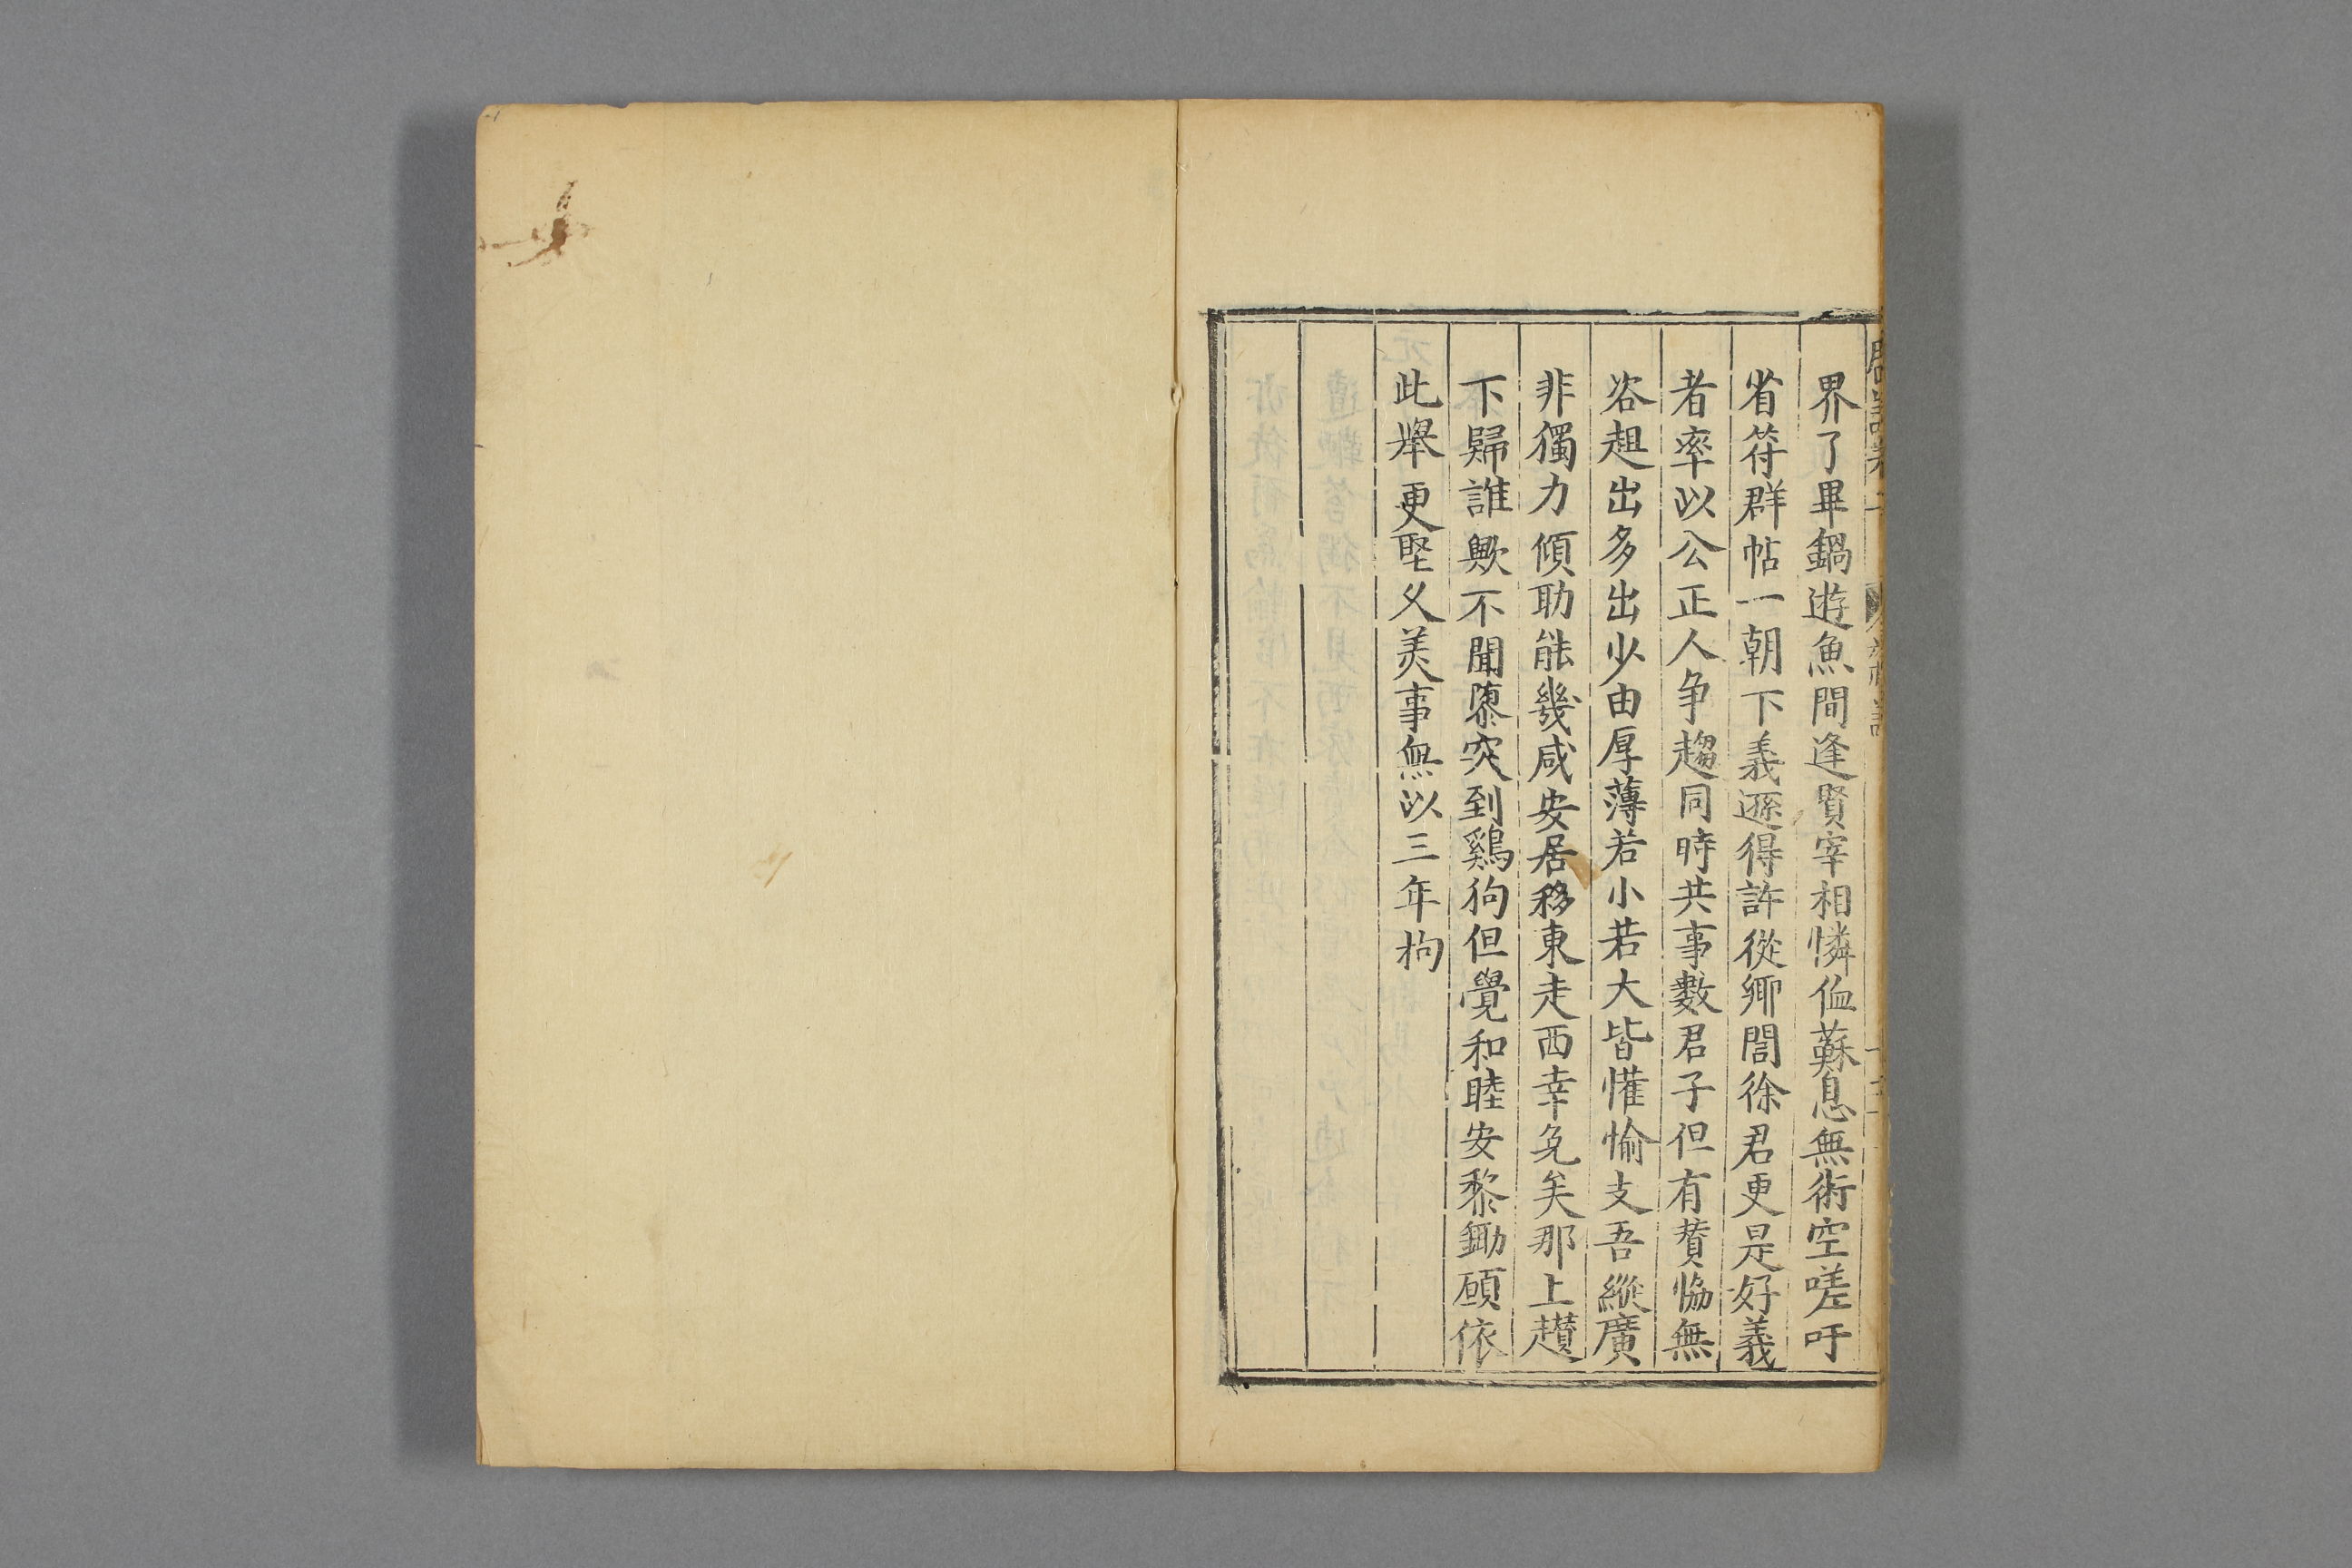 界了畢鍋遊魚間逢賢宰相憐恤蘇息無術空嗟吁
省符群帖一朝下義遜得許從鄉閭徐君更是好義
者率以公正人争趨同時共事數君子但有賛恊無
咨趄出多出少由厚薄若小若大皆懽愉支吾縱廣
非獨力傾助能幾咸安居移東走西幸免矣那上趲
下歸誰歟不聞隳突到鷄狗但覺和睦安黎鋤願依
此舉更堅乆美事無以三年拘